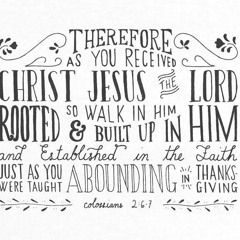 THEREFORE
AS YOU RECEIVED
CHRIST JESUS THE LORD
SO WALK IN HIM
ROOTED & BUILT UP IN HIM
and Established in the Faith
JUST AS YOU WERE TAUGHT
ABOUNDING IN THANKS-
GIVING
colossians 2:6-7